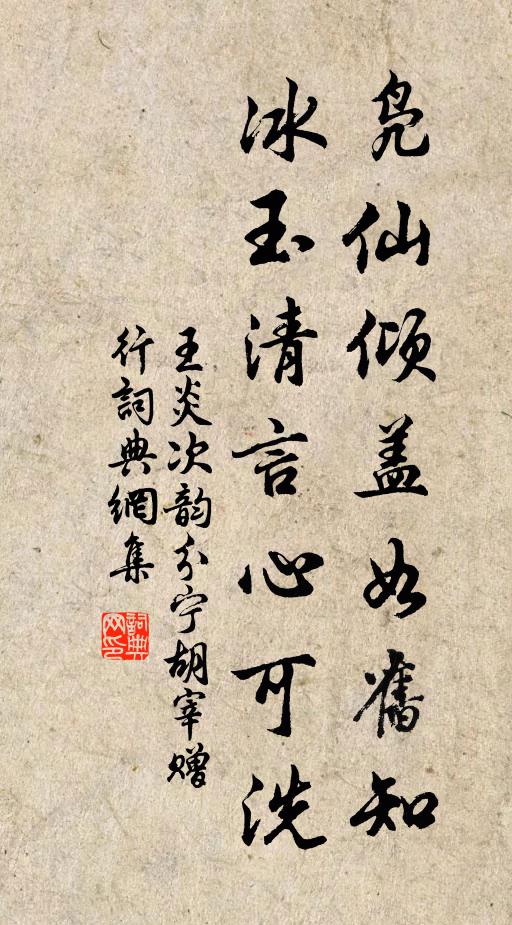 凫仙倾盖如舊知
冰玉清言心可洗
王炎次韵分宁胡宰赠
行詞典網集
詞典网印